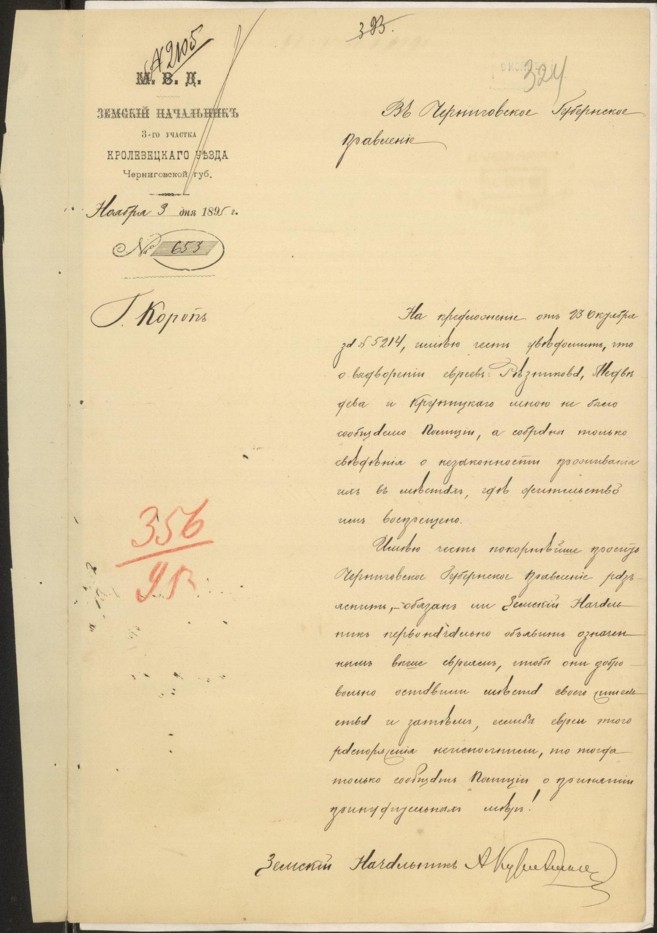 393.
№ 2105
324
М. В. Д.
ЗЕМСКІЙ НАЧАЛЬНИКЪ
3-го УЧАСТКА
КРОЛЕВЕЦКАГО УѢЗДА
Черниговской губ.
Ноября 3 дня 1895 г.
№ 653
Г. Коропъ
Въ Черниговское Губернское
Правленіе
На предложеніе отъ 23 Октября
за № 5214, имѣю честь увѣдомить, что
о водвореніи евреевъ: Рѣзникова, Медвѣ
дева и Крупицкаго мною не было
сообщаемо Полиціи, а собраны только
свѣдѣнія о незаконности проживанія
ихъ въ мѣстахъ, гдѣ жительство
имъ воспрещено.
Имѣю честь покорнѣйше просить
Черниговское Губернское Правленіе разъ
яснить, обязанъ ли Земскій Началь
никъ первоначально объявить означен
нымъ выше евреямъ, чтобы они добро
вольно оставили мѣста своего житель
ства и затѣмъ, еслибъ евреи этого
распоряженія неисполнили, то тогда
только сообщать Полиціи о принятіи
принудительныхъ мѣръ!
356
95
Земскій Начальникъ